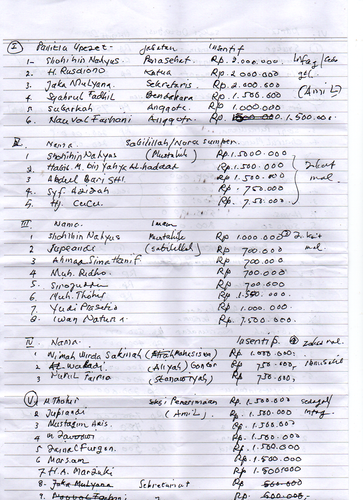 I Panitia Upezet - Jabatan Insentif
1- Shohibin Nahyus Penasehat Rp. 2.000.000
2. H. Rusdiono Ketua Rp 2.000.000
3. Jaka Mulyana. Sekretaris Rp. 2.000.000 (Amil)
4. Syahrul Fadhil Bendahara Rp 1.500.000
5. Subarkah Anggota Rp 1.000.000
6. Nauval Farhani Anggota Rp 1.500.000
II. Nama. Sabilillah/Nara sumper.
1 Shohibin Nahyus (Mustahik) Rp 1.5000.000
2. Habib M. Din Yahya Alhadaar Rp 1.500.000 Zakat
3. Abdul Bari SHI. Rp 1.500.000 mal
4. Syf. Azizah Rp. 750.000
5. Hj. CuCu. Rp. 7.50.000
III. Nama. Imam
1 Shohibin Nahyus Mustahik Rp 1.000.000 Zakat
2 Jupriandi (Sabilillah) Rp 700.000 mal
3 Ahmad Sima Hanif Rp 700.000
4 Muh. Ridho. Rp 700.000
5. Rp 700.000
6. Muh. Thohir Rp 1.500.000
7. Yudi Prasetio Rp 1.000.000
8. Iwan Rp 7.500.000
IV Nama. Insentip
1 Ni'mah Wirda Sakinah (Mahasiswa) Rp 1.000.000;
2 (Aliyah) Gontor Rp 750.000,
3 (Stanawiyah) Rp 750.000,
V M. Thohir Segi Penerimaan Rp 1.500.000
2 Jupriandi (Amil) Rp 1.500.000
3 Mustagim Anis. Rp 1.500.000
4 Rp 1.500.000
5 Zainal Furqon. Rp 1.500.000
6 Marsam Rp 1.500.000
7. H.A. Marzuki Rp 1.5001000
8. Jaka Mulyana Sekretariat Rp 500.000
Rp 600.000